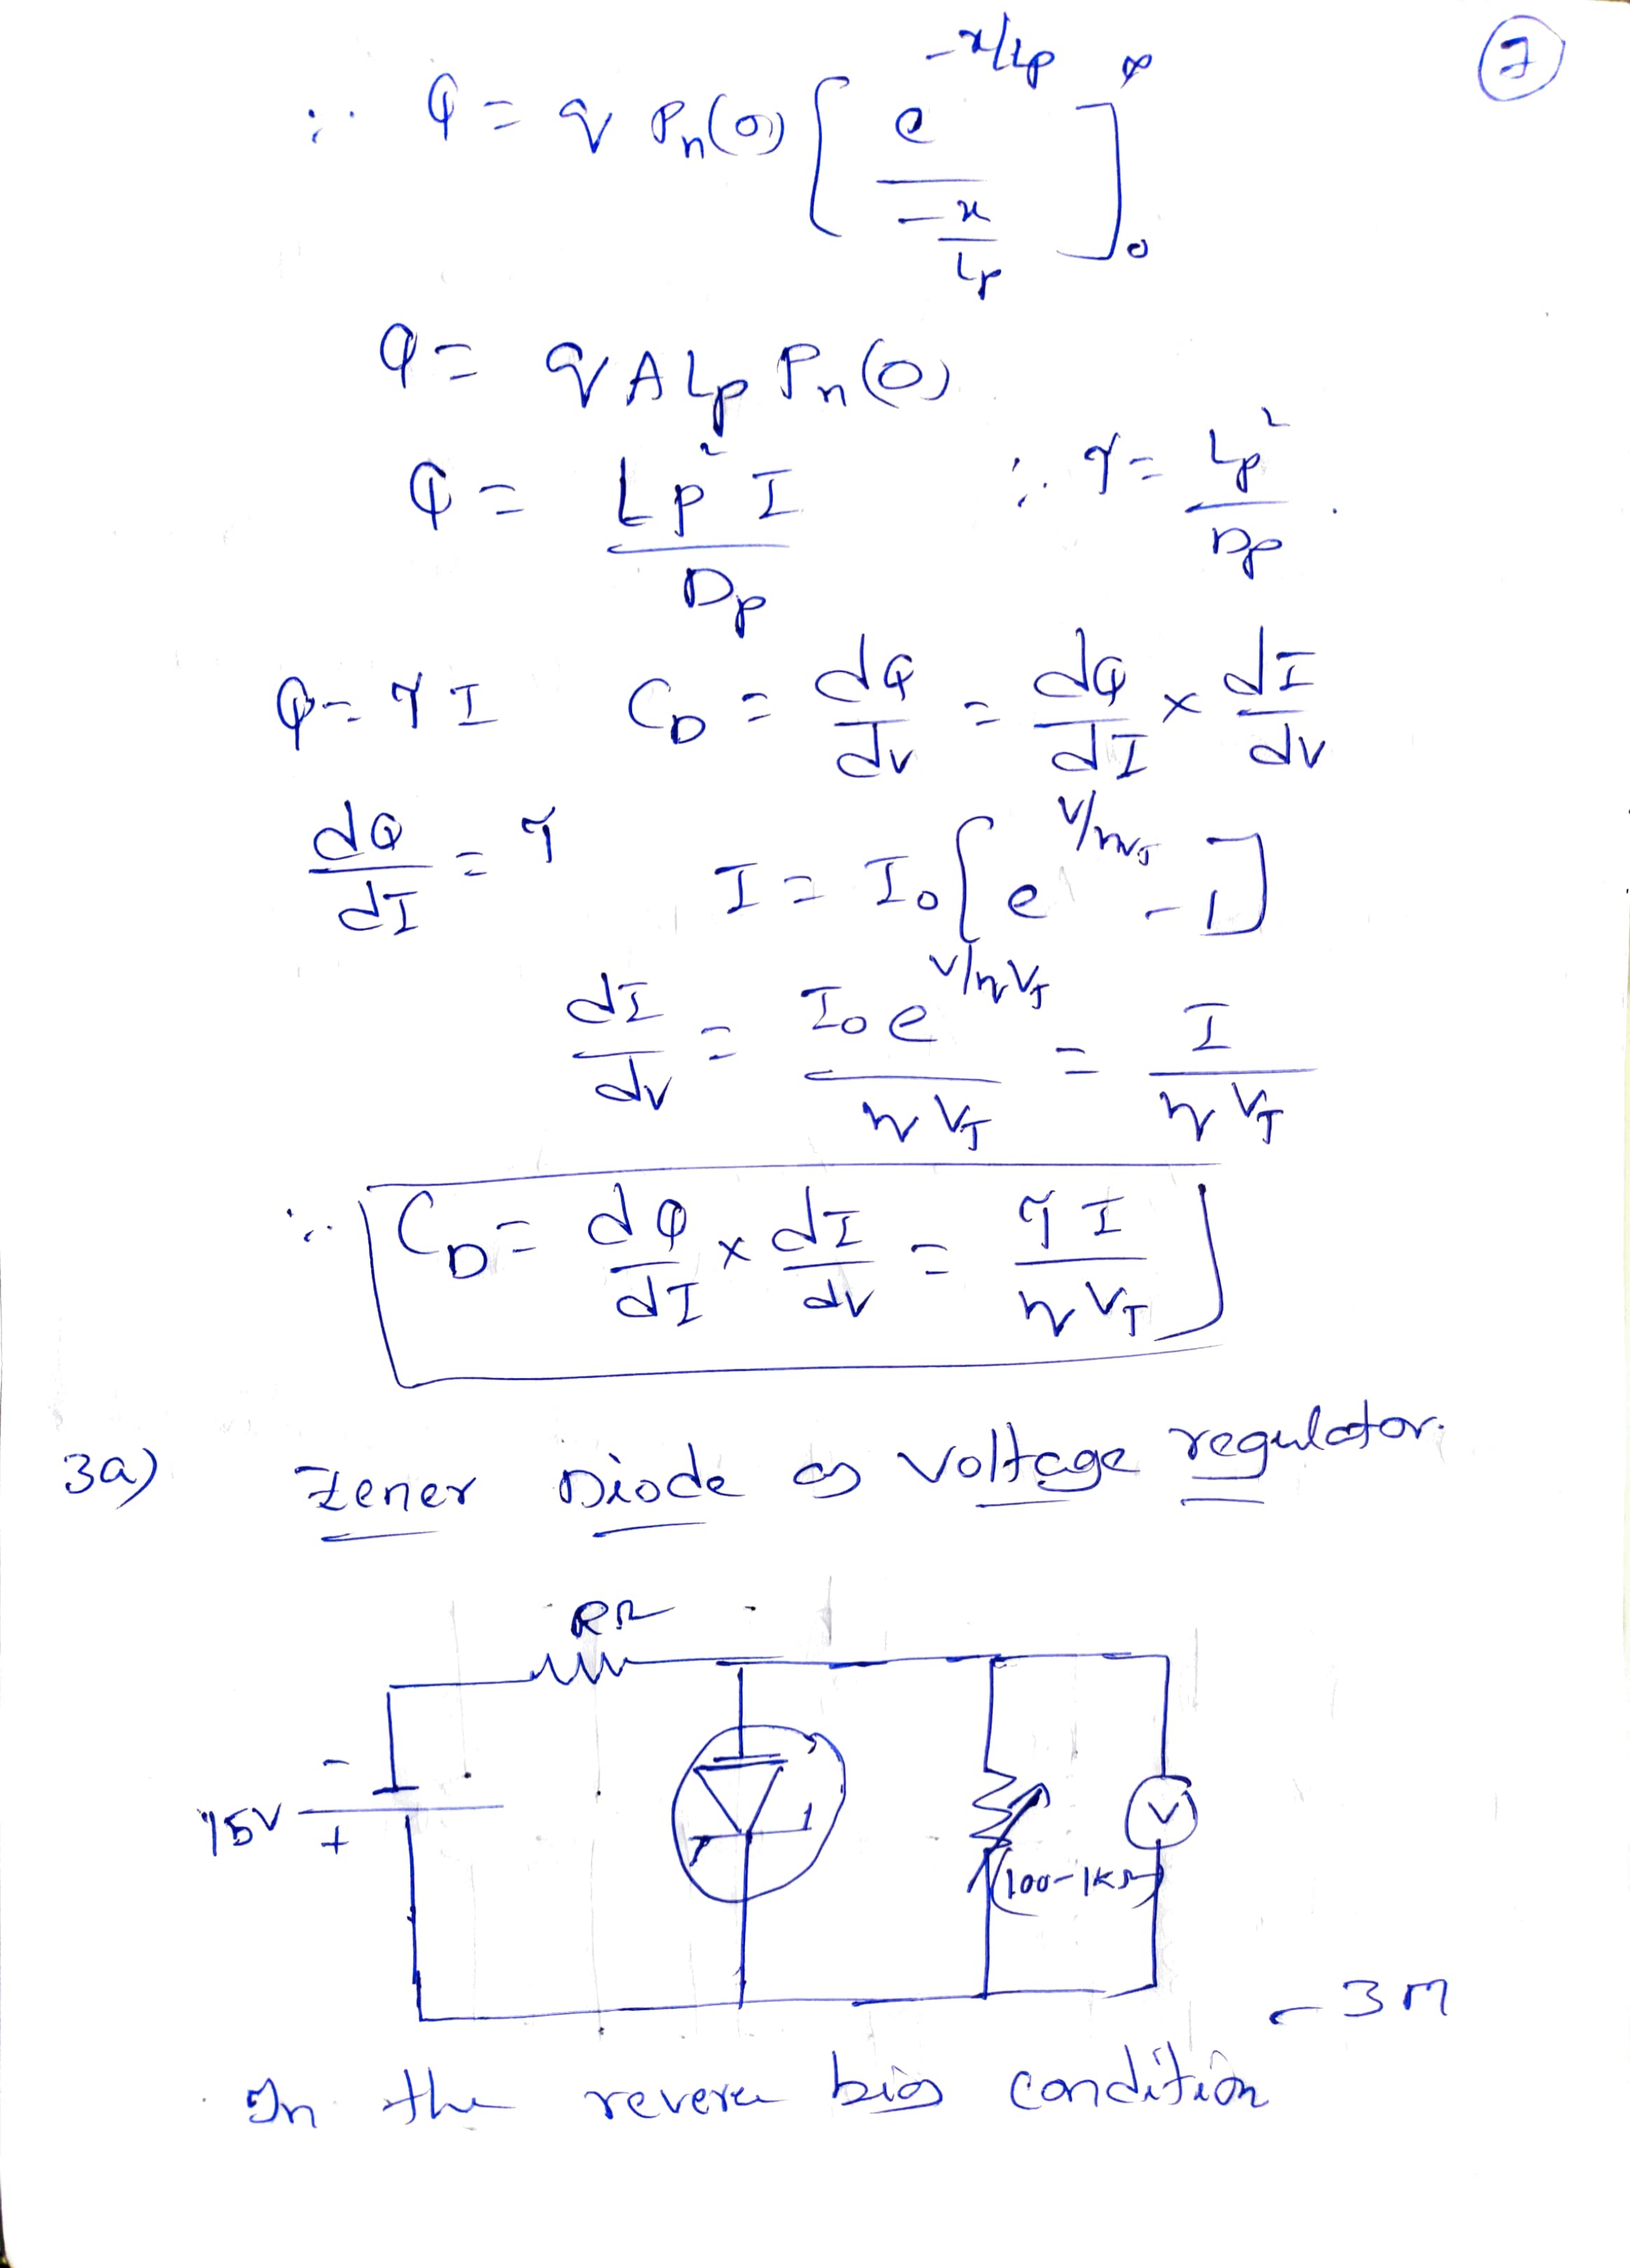 7
∴ Q = q Pn(0) [ e^(-x/Lp) / (-x/Lp) ]₀^∞
Q = q A Lp Pn(0)
Q = Lp² I / Dp ∴ τ = Lp² / Dp .
Q = τ I CD = dQ/dV = dQ/dI × dI/dV
dQ/dI = τ I = I0 [ e^(V/ηVT) - 1 ]
dI/dV = I0 e^(V/ηVT) / ηVT = I / ηVT
∴ CD = dQ/dI × dI/dV = τ I / ηVT
3a) Zener Diode as Voltage regulator.
RΩ
-
15V
+
V
(100-1KΩ)
- 3M
In the reverse bias condition